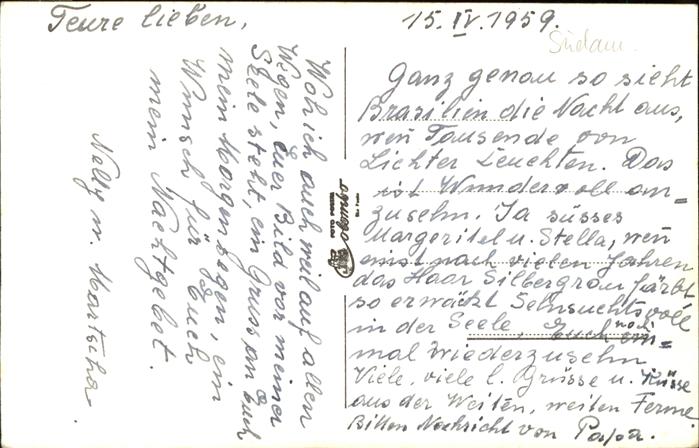 Teure lieben,
15. IV. 1959.
Südam.
Ganz genau so sieht
Brasilien die Nacht aus,
wen Tausende von
Lichter Leuchten. Das
ist Wundervoll an=
zusehn. Ja süsses
Margeritel u. Stella, wen
einst nach vielen Jahren
das Haar Silbergrau färbt
so erwäckt Sehnsuchtsvoll
in der Seele, Euch noch ein=
mal Wiederzusehn
Viele, viele l. Grüsse u. Küsse
aus der Weiten, weiten Ferne
Bitten Nachricht von
Woh ich auch weil auf allen
Wegen, Euer Bild vor meiner
Seele steht, ein Gruss an Euch
mein Morgensegen, ein
Wunsch für Euch
mein Nachtgebet.
Nelly u.
FOTO POSTAL
Colombo